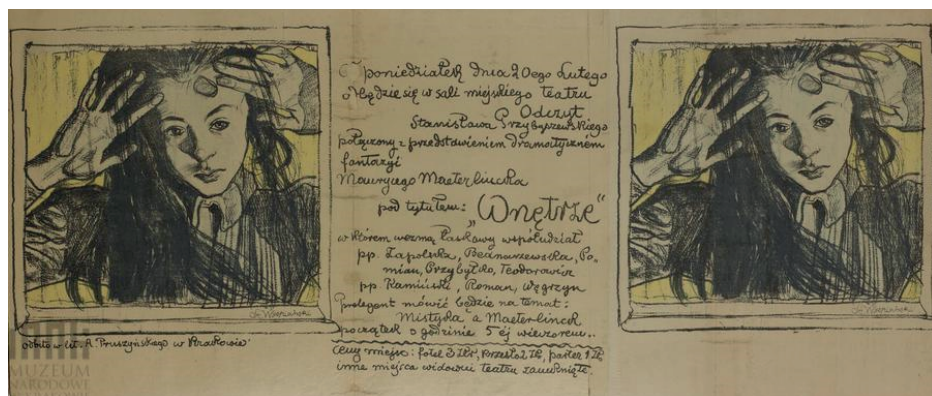 W poniedziałek dnia 20ego Lutego
odbędzie się w sali miejskiego teatru
Odczyt
Stanisława Przybyszewskiego
połączony z przedstawieniem dramatycznem
fantazyi
Maurycego Maeterlincka
pod tytułem: „Wnętrze“
w którem wezmą łaskawy współudział
pp. Zapolska, Bednarzewska, Po-
mian, Przybyłko, Teodorowicz
pp. Kamiński, Roman, Węgrzyn
Prelegent mówić będzie na temat:
Mistyka a Maeterlinck
początek o godzinie 5 ej wieczorem..
Ceny miejsc: fotel 3 Złr, krzesło 2 Zł, parter 1 Zł
inne miejsca widowni teatru zamknięte.
St. Wyspiański
St. Wyspiański
odbito w lit. A. Pruszyńskiego w Krakowie
MUZEUM
NARODOWE